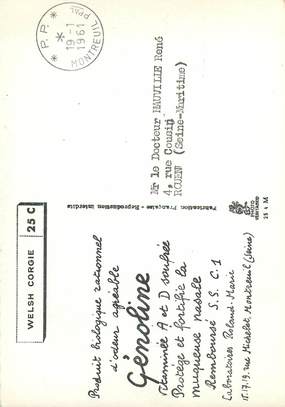 * P.P. *
19-1
1961
PPAL
MONTREUIL
WELSH CORGIE
25 C
Mr le Docteur HAUVILLE René
4, rue Cousin
ROUEN (Seine-Maritime)
Fabrication Française - Reproduction interdite
25 4 M
Produit biologique rationnel
d'odeur agréable
Génoline
Vitaminée A et D soufrée
Protège et fortifie la
muqueuse nasale
Remboursé S.S. C.1
Laboratoires Roland-Marie
15.17.19. rue Michelet. Montreuil (Seine)